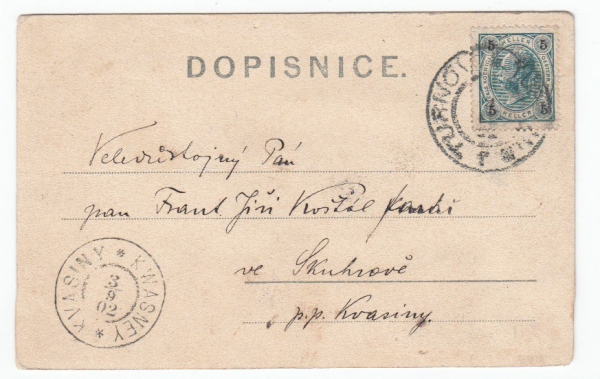 DOPISNICE.
5 HELLER 5
5 HELLER 5
TURNOV
Velevdůstojný Pán
pan Frant. Jiří Košťál
ve Skuhrově
p.p. Kvasiny.
KVASINY * KWASNEY *
3/9
02